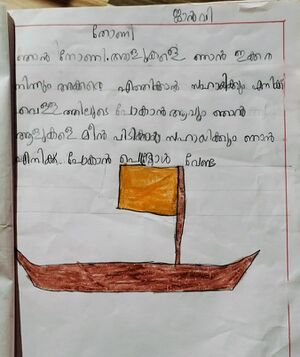 ജാൻവി
തോണി
ഞാൻ തോണി. ആളുകളെ ഞാൻ ഇക്കര
നിന്നും അക്കരെ എത്തിക്കാൻ സഹായിക്കും എനിക്ക്
വെള്ളത്തിലൂടെ പോകാൻ ആവും ഞാൻ
ആളുകളെ മീൻ പിടിക്കാൻ സഹായിക്കും ഞാൻ
എനിക്കു പോകാൻ പെട്രോൾ വേണ്ട